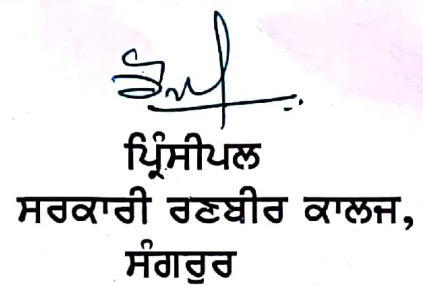 ਪ੍ਰਿੰਸੀਪਲ
ਸਰਕਾਰੀ ਰਣਬੀਰ ਕਾਲਜ,
ਸੰਗਰੂਰ